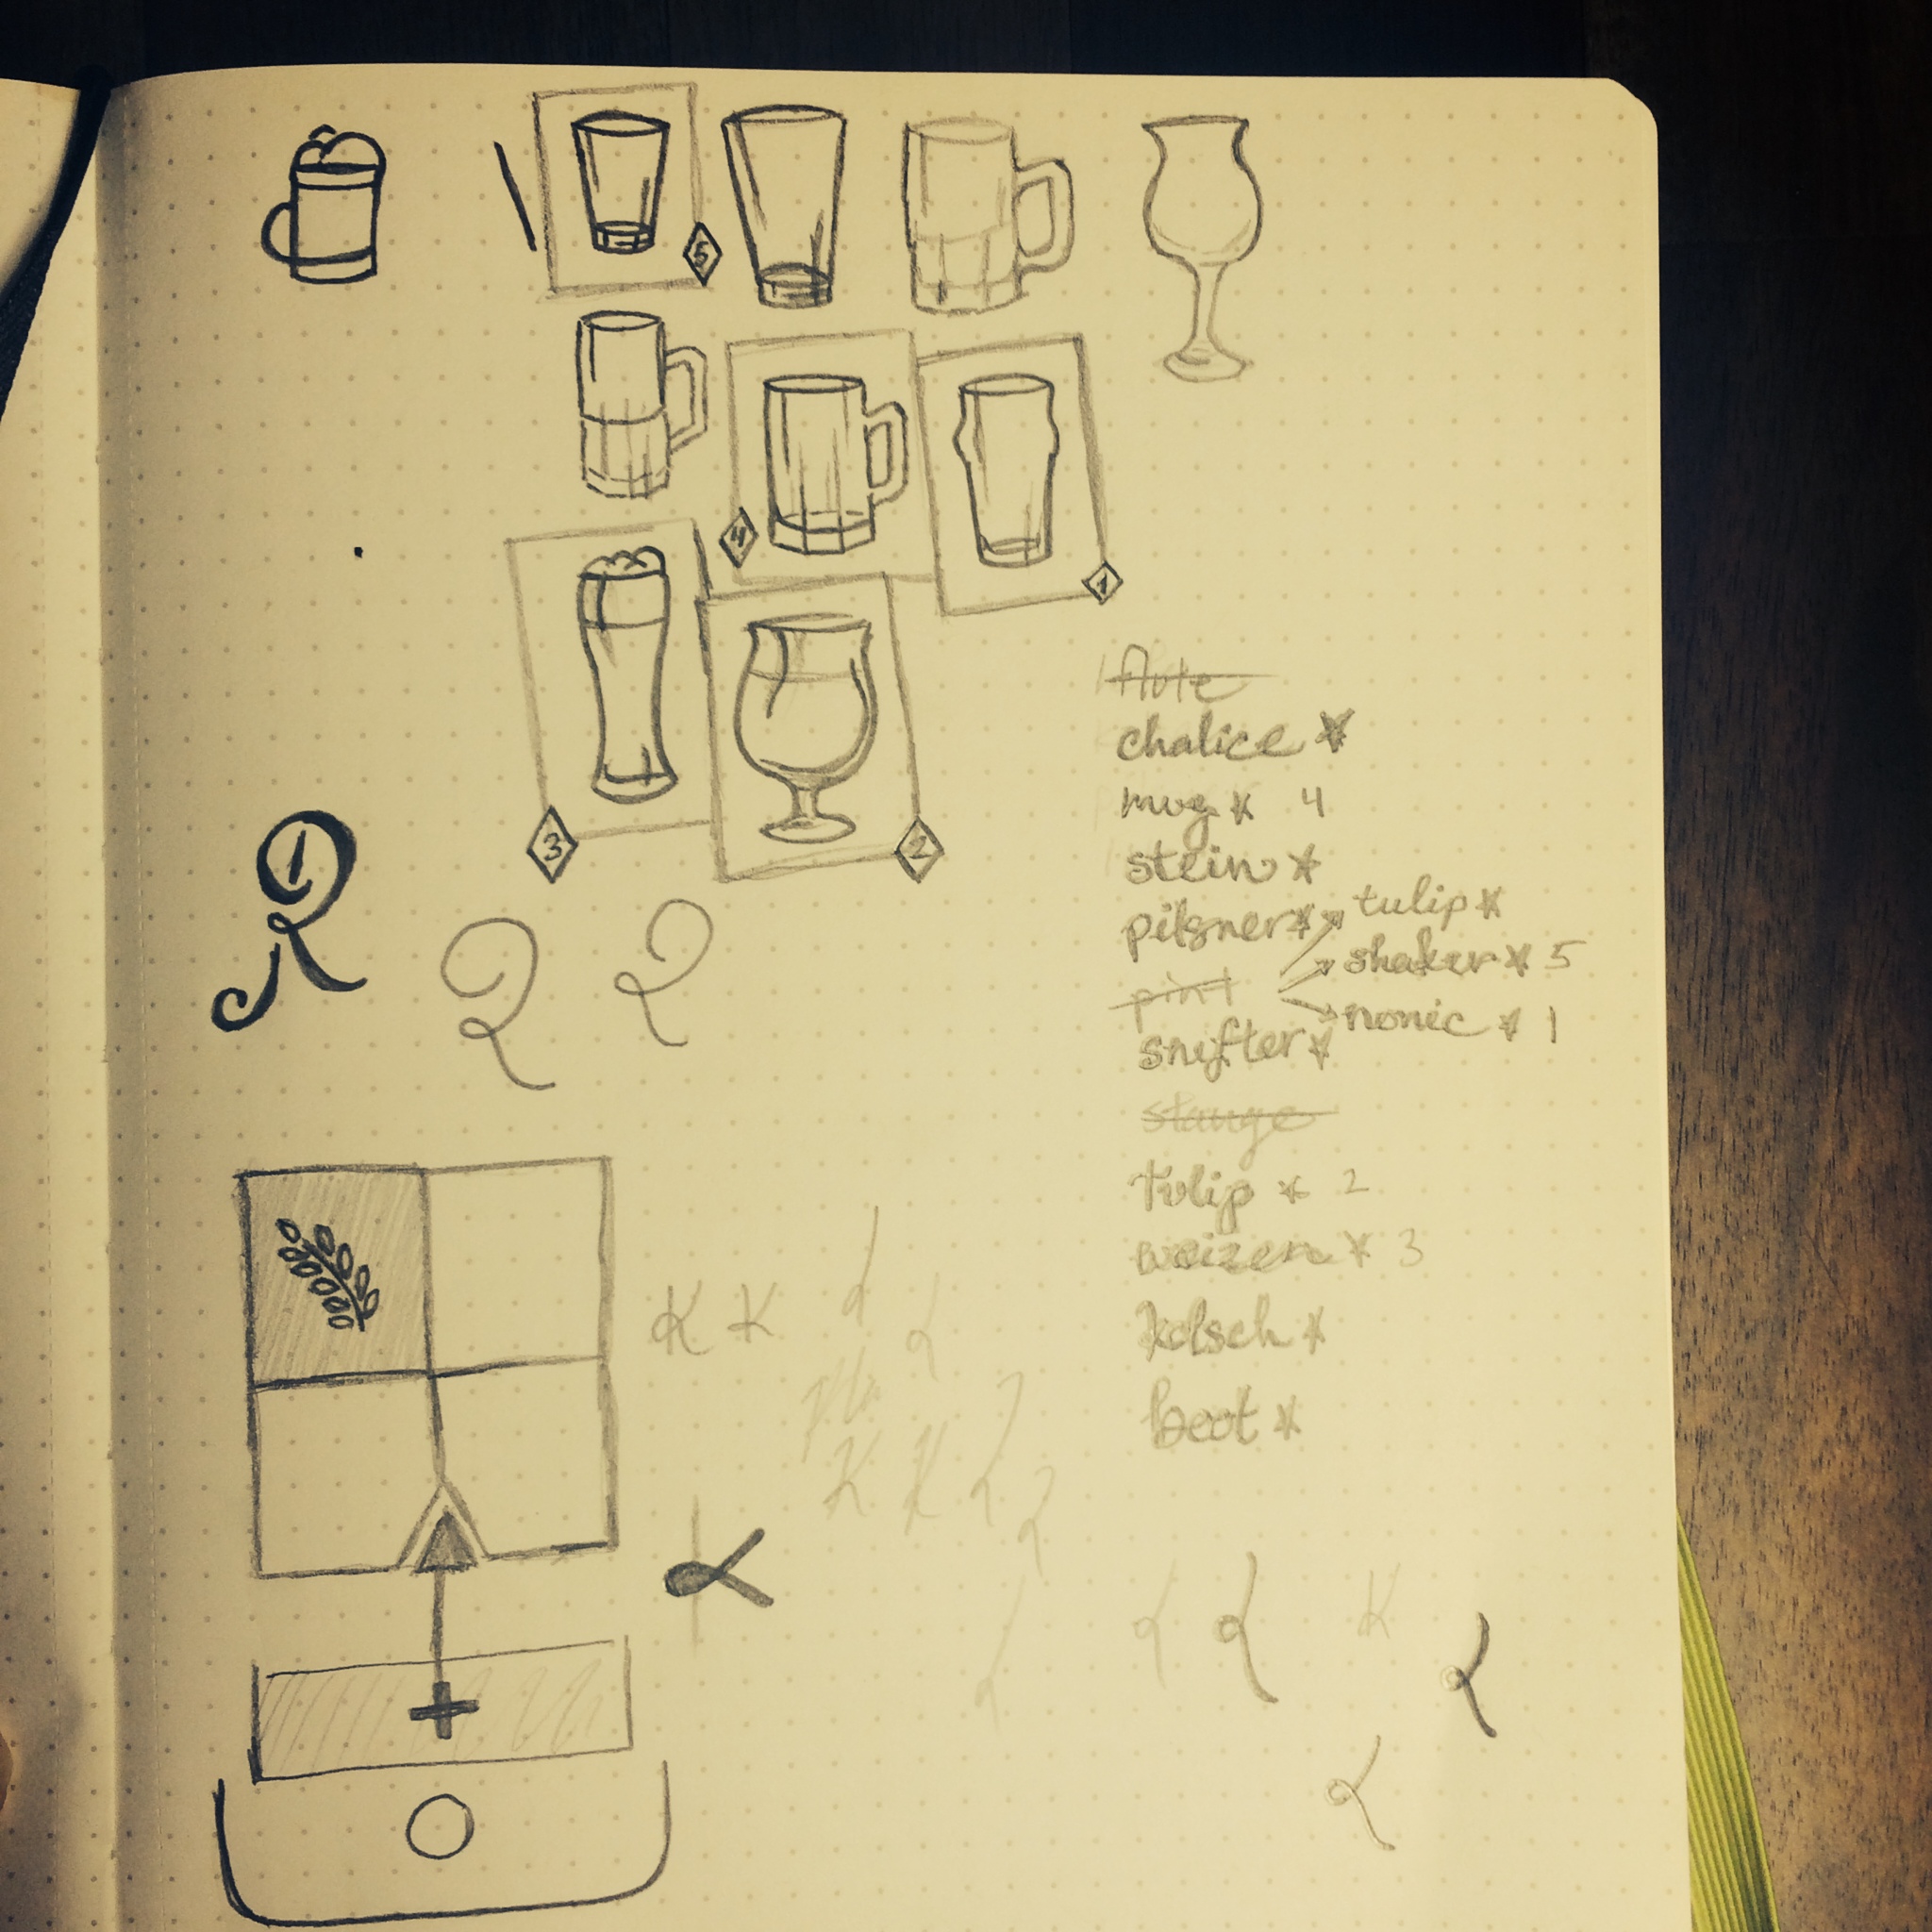 5
4
1
3
2
flute
chalice *
mug * 4
stein *
pilsner *
tulip *
shaker * 5
pint
nonic * 1
snifter *
stange
Tulip * 2
weizen * 3
kolsch *
boot *
R
K K
K K
+